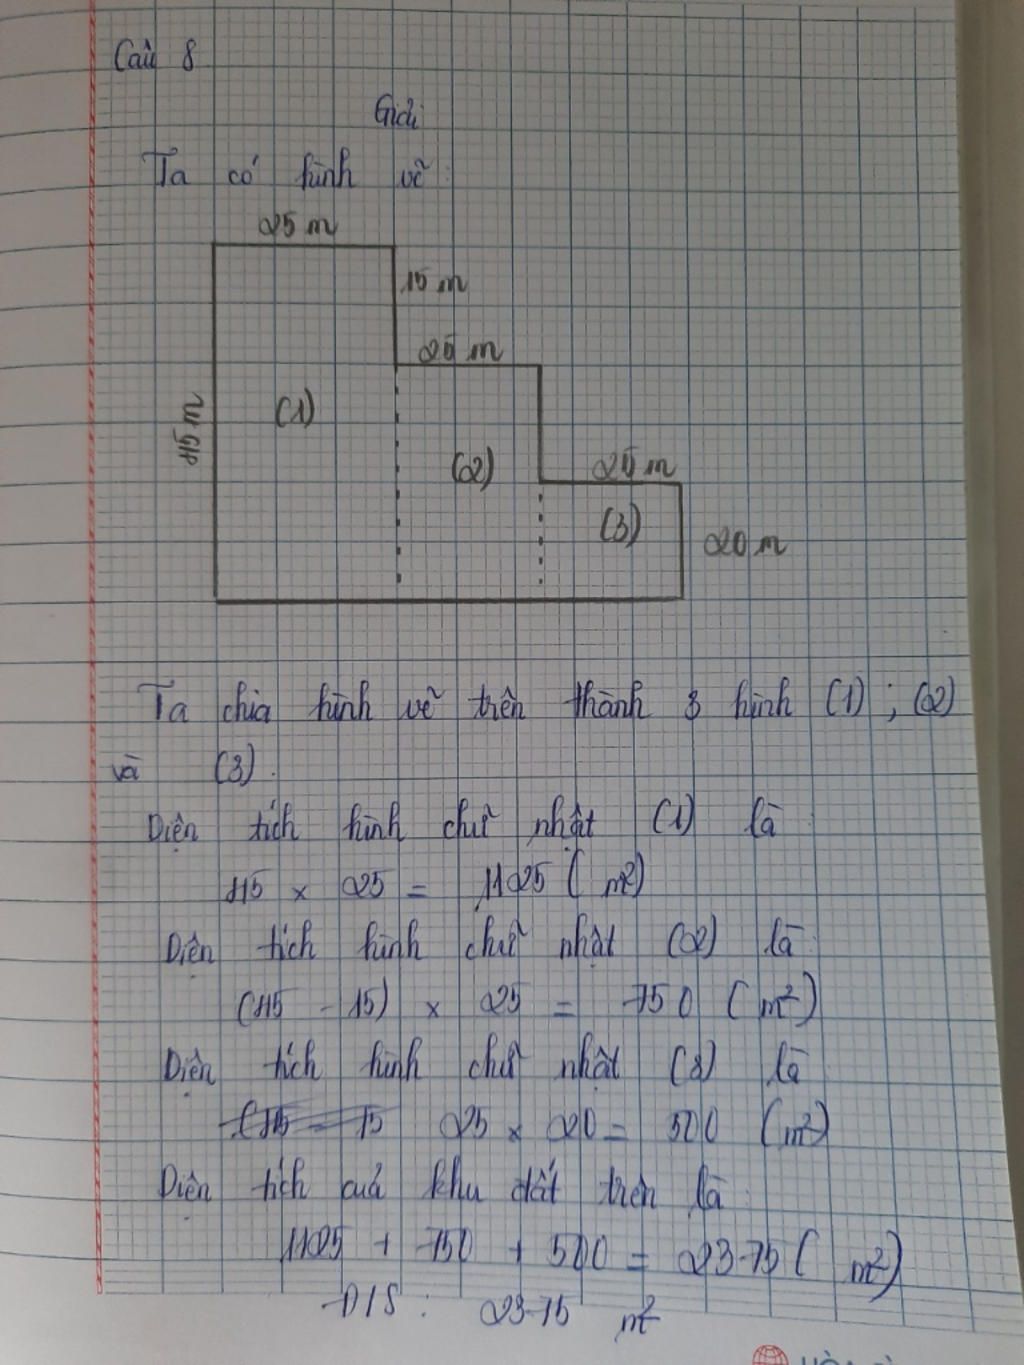 Câu 8
Giải
Ta có hình vẽ:
25 m
15 m
25 m
45 m
(1)
(2)
25 m
(3)
20 m
Ta chia hình vẽ trên thành 3 hình (1) ; (2)
và (3).
Diện tích hình chữ nhật (1) là:
45 × 25 = 1125 ( m²)
Diện tích hình chữ nhật (2) là:
(45 - 15) × 25 = 750 ( m²)
Diện tích hình chữ nhật (3) là
25 × 20 = 500 (m²)
Diện tích cuả khu đất trên là:
1125 + 750 + 500 = 2375 ( m²)
Đ/S : 2375 m²